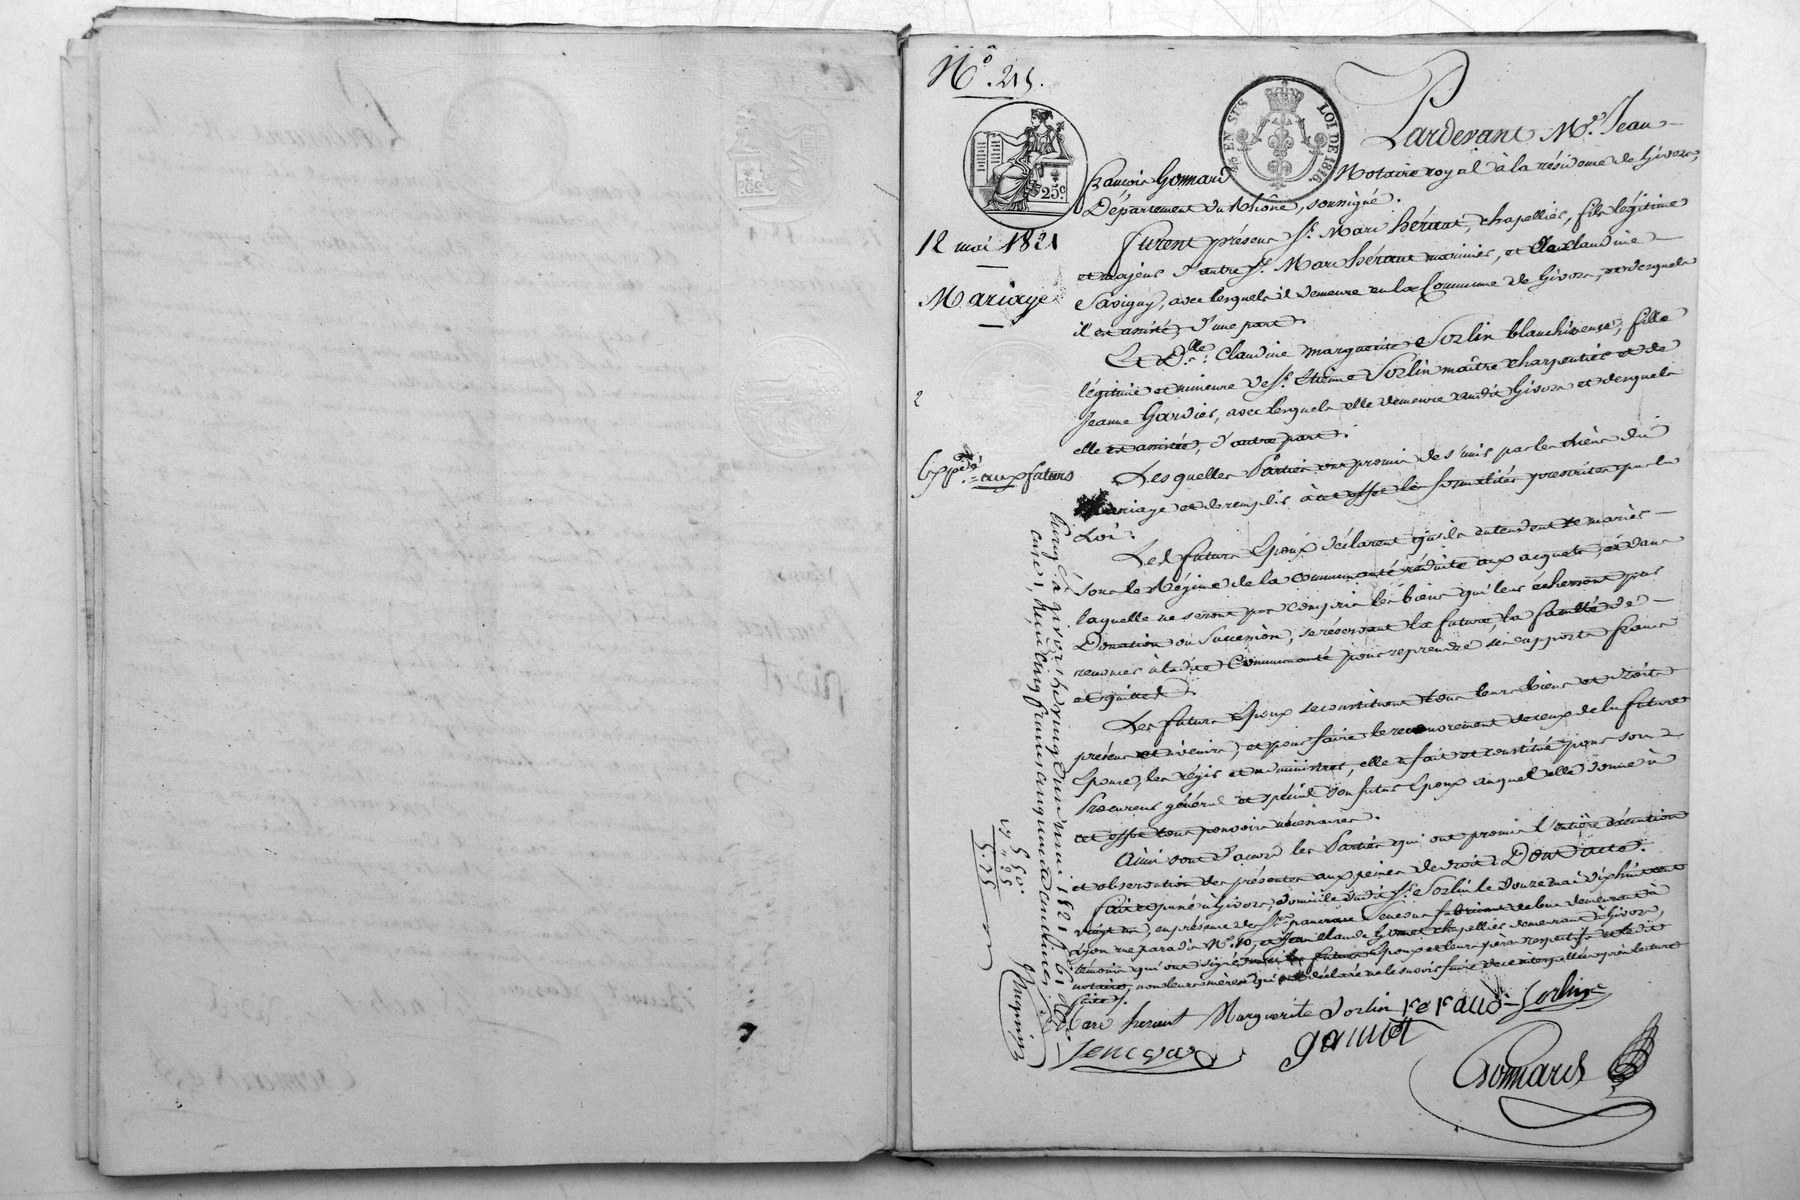 N.º 215.
25.c
EN SUS
LOI DE 1816.
12 mai 1821
Mariage
2
Expé aux futurs
Pardevant M.e Jean
francois Gonnard Notaire royal à la résidence de Givors,
Département du Rhône, soussigné.
furent présens S.r Marc héraut, chapellier, fils légitime
et majeur d'autre S.r Marc héraut marinier, et Claudine
Savigny, avec lesquels il demeure en la Commune de Givors, et desquels
il est assisté, d'une part.
Et D.lle Claudine marguerite Sorlin blanchisseuse, fille
légitime et mineure de S.r Etienne Sorlin maître charpentier et de
Jeanne Gardier, avec lesquels elle demeure audit Givors et desquels
elle est assistée, d'autre part.
Lesquelles Parties ont promis de s'unir par les liens du
mariage et de remplir à cet effet les formalités prescrites par la
Loi.
Les futurs Epoux déclarent qu'ils entendent se marier
sous le Régime de la communauté réduite aux acquets, et dans
laquelle ne seront pas compris les biens qui leur écherront par
Donation ou Succession, se réservant la future la faculté de
renoncer à ladite Communauté pour reprendre ses apports francs
et quittes.
Les futurs Epoux se constituent tous leurs biens et droits
présens et avenir, et pour faire le recouvrement de ceux de la future
Epouse, les régir et administrer, elle a fait et constitué pour son
Procureur général et spécial son futur Epoux auquel elle donne à
cet effet tous pouvoirs nécessaires.
Ainsi sont d'accord les Parties qui ont promis l'entière exécution
et observation des présentes aux peines de droit. Dont acte.
fait et passé à Givors, domicile dudit S.r Sorlin le douze mai dix huit cent
vingt un, en présence de S.rs pancrace Senequa fabricant de bas demeurant à
Lyon rue paradis N.º 10, et Jean claude Gamet chapellier demeurant à Givors,
témoins qui ont signé avec les futurs Epoux et leurs pères respectifs et ledit
notaire, non leurs mères qui ont déclaré ne le savoir faire de ce interpellées après lecture
faite.
Marc heraut Marguerite Sorlin reraud Sorlin
gamet
Gonnard
Enregé à givors le vingt un mai 1821
cinq francs cinquante centimes
5 50
55